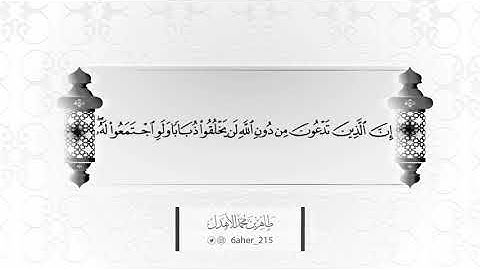 إِنَّ الَّذِينَ تَدْعُونَ مِن دُونِ اللَّهِ لَن يَخْلُقُوا۟ ذُبَابًا وَلَوِ اجْتَمَعُوا۟ لَهُۥ ۖ
طاهر بن محمد الأهدل
6aher_215